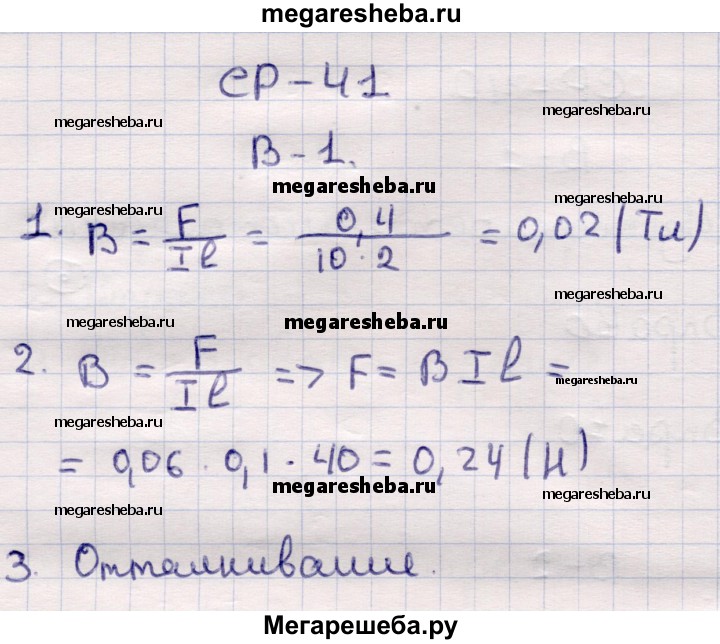 megaresheba.ru
СР-41
megaresheba.ru
megaresheba.ru
В-1.
megaresheba.ru
megaresheba.ru
megaresheba.ru
1. B = F/Il = 0,4/10·2 = 0,02 (Тл)
megaresheba.ru
megaresheba.ru
megaresheba.ru
2. B = F/Il => F = B I l =
megaresheba.ru
megaresheba.ru
= 0,06 · 0,1 · 40 = 0,24 (Н)
megaresheba.ru
megaresheba.ru
megaresheba.ru
3. Отталкивание.
Мегарешеба.ру